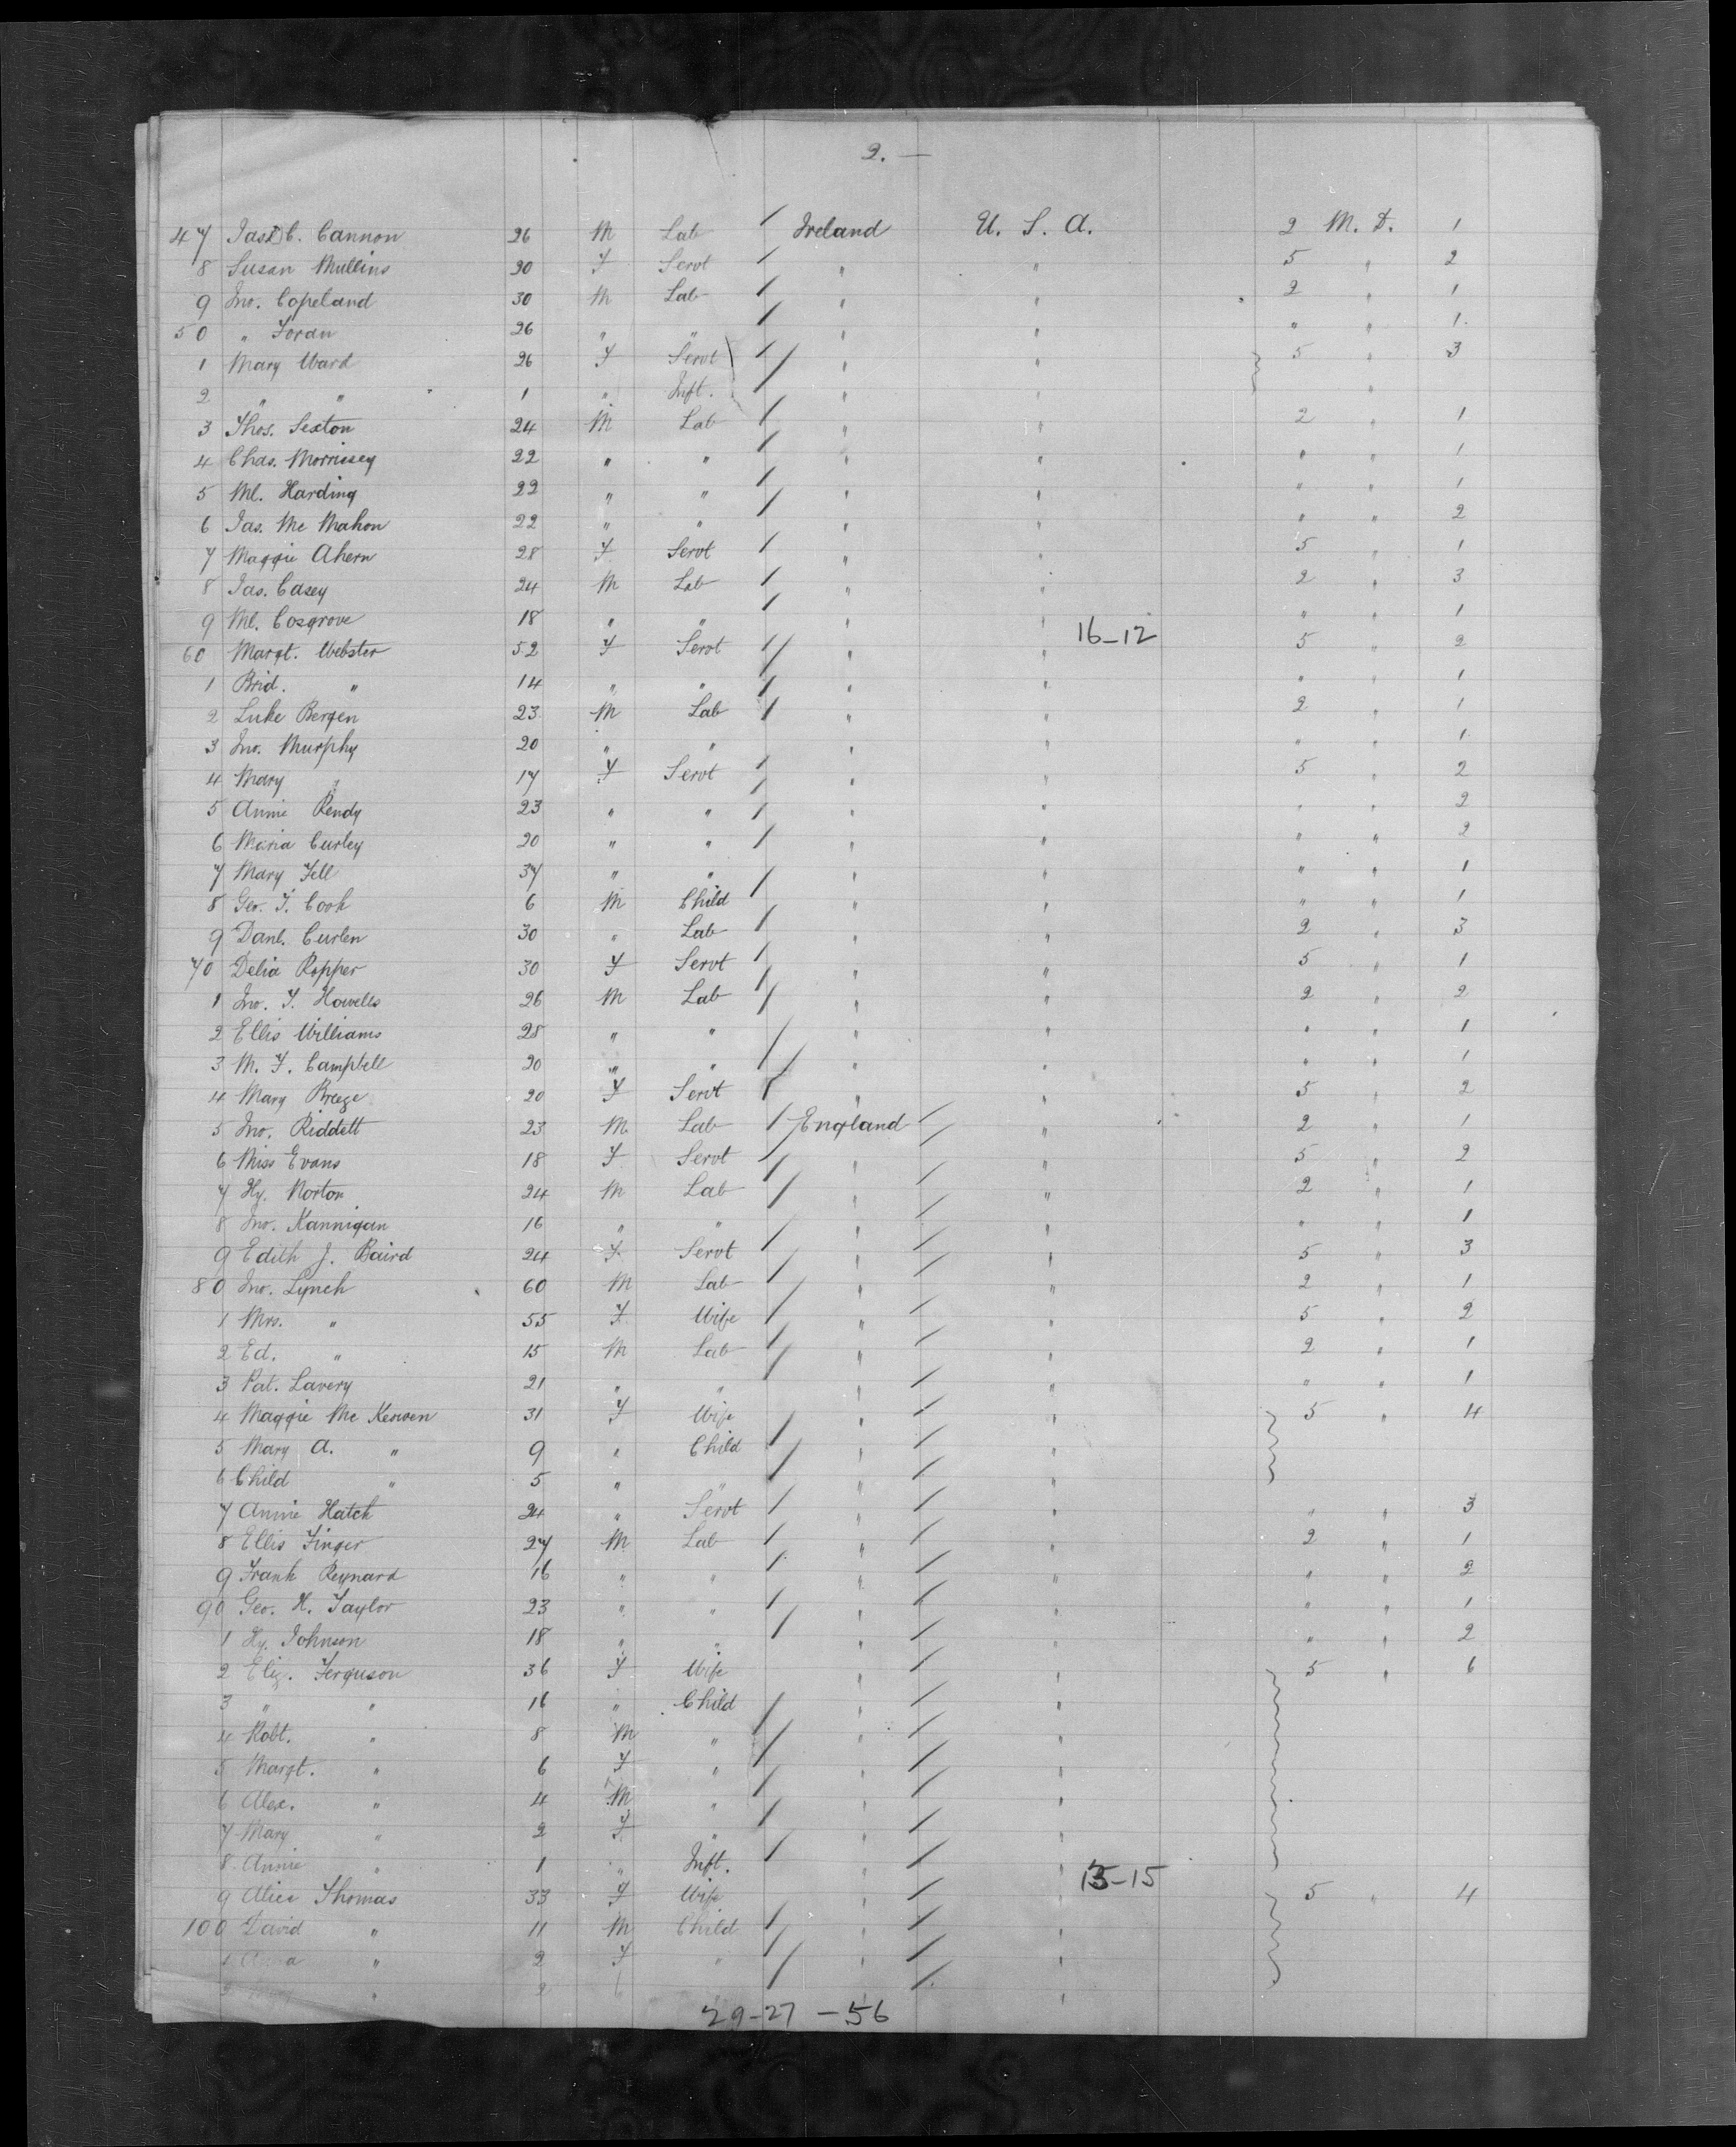 2. —
47 Jas. C. Cannon 26 M Lab / Ireland U. S. A. 2 M. D. 1
8 Susan Mullins 30 F Servt / " " 5 " 2
9 Jno. Copeland 30 M Lab / " " 2 " 1
50 " Foran 26 " " / " " " " 1
1 Mary Ward 26 F Servt / " " 5 " 3
2 " " 1 " Inft. / " " "
3 Thos. Sexton 24 M Lab / " " 2 " 1
4 Chas. Morrissey 22 " " / " " " " 1
5 Ml. Harding 22 " " / " " " " 1
6 Jas. Mc Mahon 22 " " / " " " " 2
7 Maggie Ahern 28 F Servt / " " 5 " 1
8 Jas. Casey 24 M Lab / " " 2 " 3
9 Ml. Cosgrove 18 " " / " " 16-12 " " 1
60 Margt. Webster 52 F Servt / " " 5 " 2
1 Brid. " 14 " " / " " " " 1
2 Luke Bergen 23 M Lab / " " 2 " 1
3 Jno. Murphy 20 " " " " " " 1
4 Mary " 17 F Servt / " " 5 " 2
5 Annie Rendy 23 " " / " " " " 2
6 Maria Curley 20 " " / " " " " 2
7 Mary Fell 37 " " / " " " " 1
8 Geo. F. Cook 6 M Child " " " " 1
9 Danl. Curlen 30 " Lab / " " 2 " 3
70 Delia Ropper 30 F Servt / " " 5 " 1
1 Jno. F. Howells 26 M Lab / " " 2 " 2
2 Ellis Williams 28 " " / " " " " 1
3 M. F. Campbell 20 " " / " " " " 1
4 Mary Breeze 20 F Servt / " " 5 " 2
5 Jno. Riddett 23 M Lab / England / " 2 " 1
6 Miss Evans 18 F Servt / " / " 5 " 2
7 Hy. Norton 24 M Lab / " / " 2 " 1
8 Jno. Kannigan 16 " " / " / " " " 1
9 Edith J. Baird 24 F Servt / " / " 5 " 3
80 Jno. Lynch 60 M Lab / " / " 2 " 1
1 Mrs. " 55 F Wife / " / " 5 " 2
2 Ed. " 15 M Lab / " / " 2 " 1
3 Pat. Lavery 21 " " " / " " " 1
4 Maggie Mc Kewen 31 F Wife / " / " 5 " 4
5 Mary A. " 9 " Child / " / "
6 Child " 5 " " " / "
7 Annie Hatch 24 " Servt / " / " " " 3
8 Ellis Finger 27 M Lab / " / " 2 " 1
9 Frank Reynard 16 " " / " / " " " 2
90 Geo. H. Taylor 23 " " / " / " " " 1
1 Hy. Johnson 18 " " / " / " " " 2
2 Eliz. Ferguson 36 F Wife " / " 5 " 6
3 " " 16 " Child / " / "
4 Robt. " 8 M " / " / "
5 Margt. " 6 F " / " / "
6 Alex. " 4 M " / " / "
7 Mary " 2 F " / " / "
8 Annie " 1 " Inft. " / " 15-15
9 Alice Thomas 33 F Wife " / " 5 " 4
100 David " 11 M Child / " / "
1 Anna " 2 F " / " / "
2 " 2
29-27-56